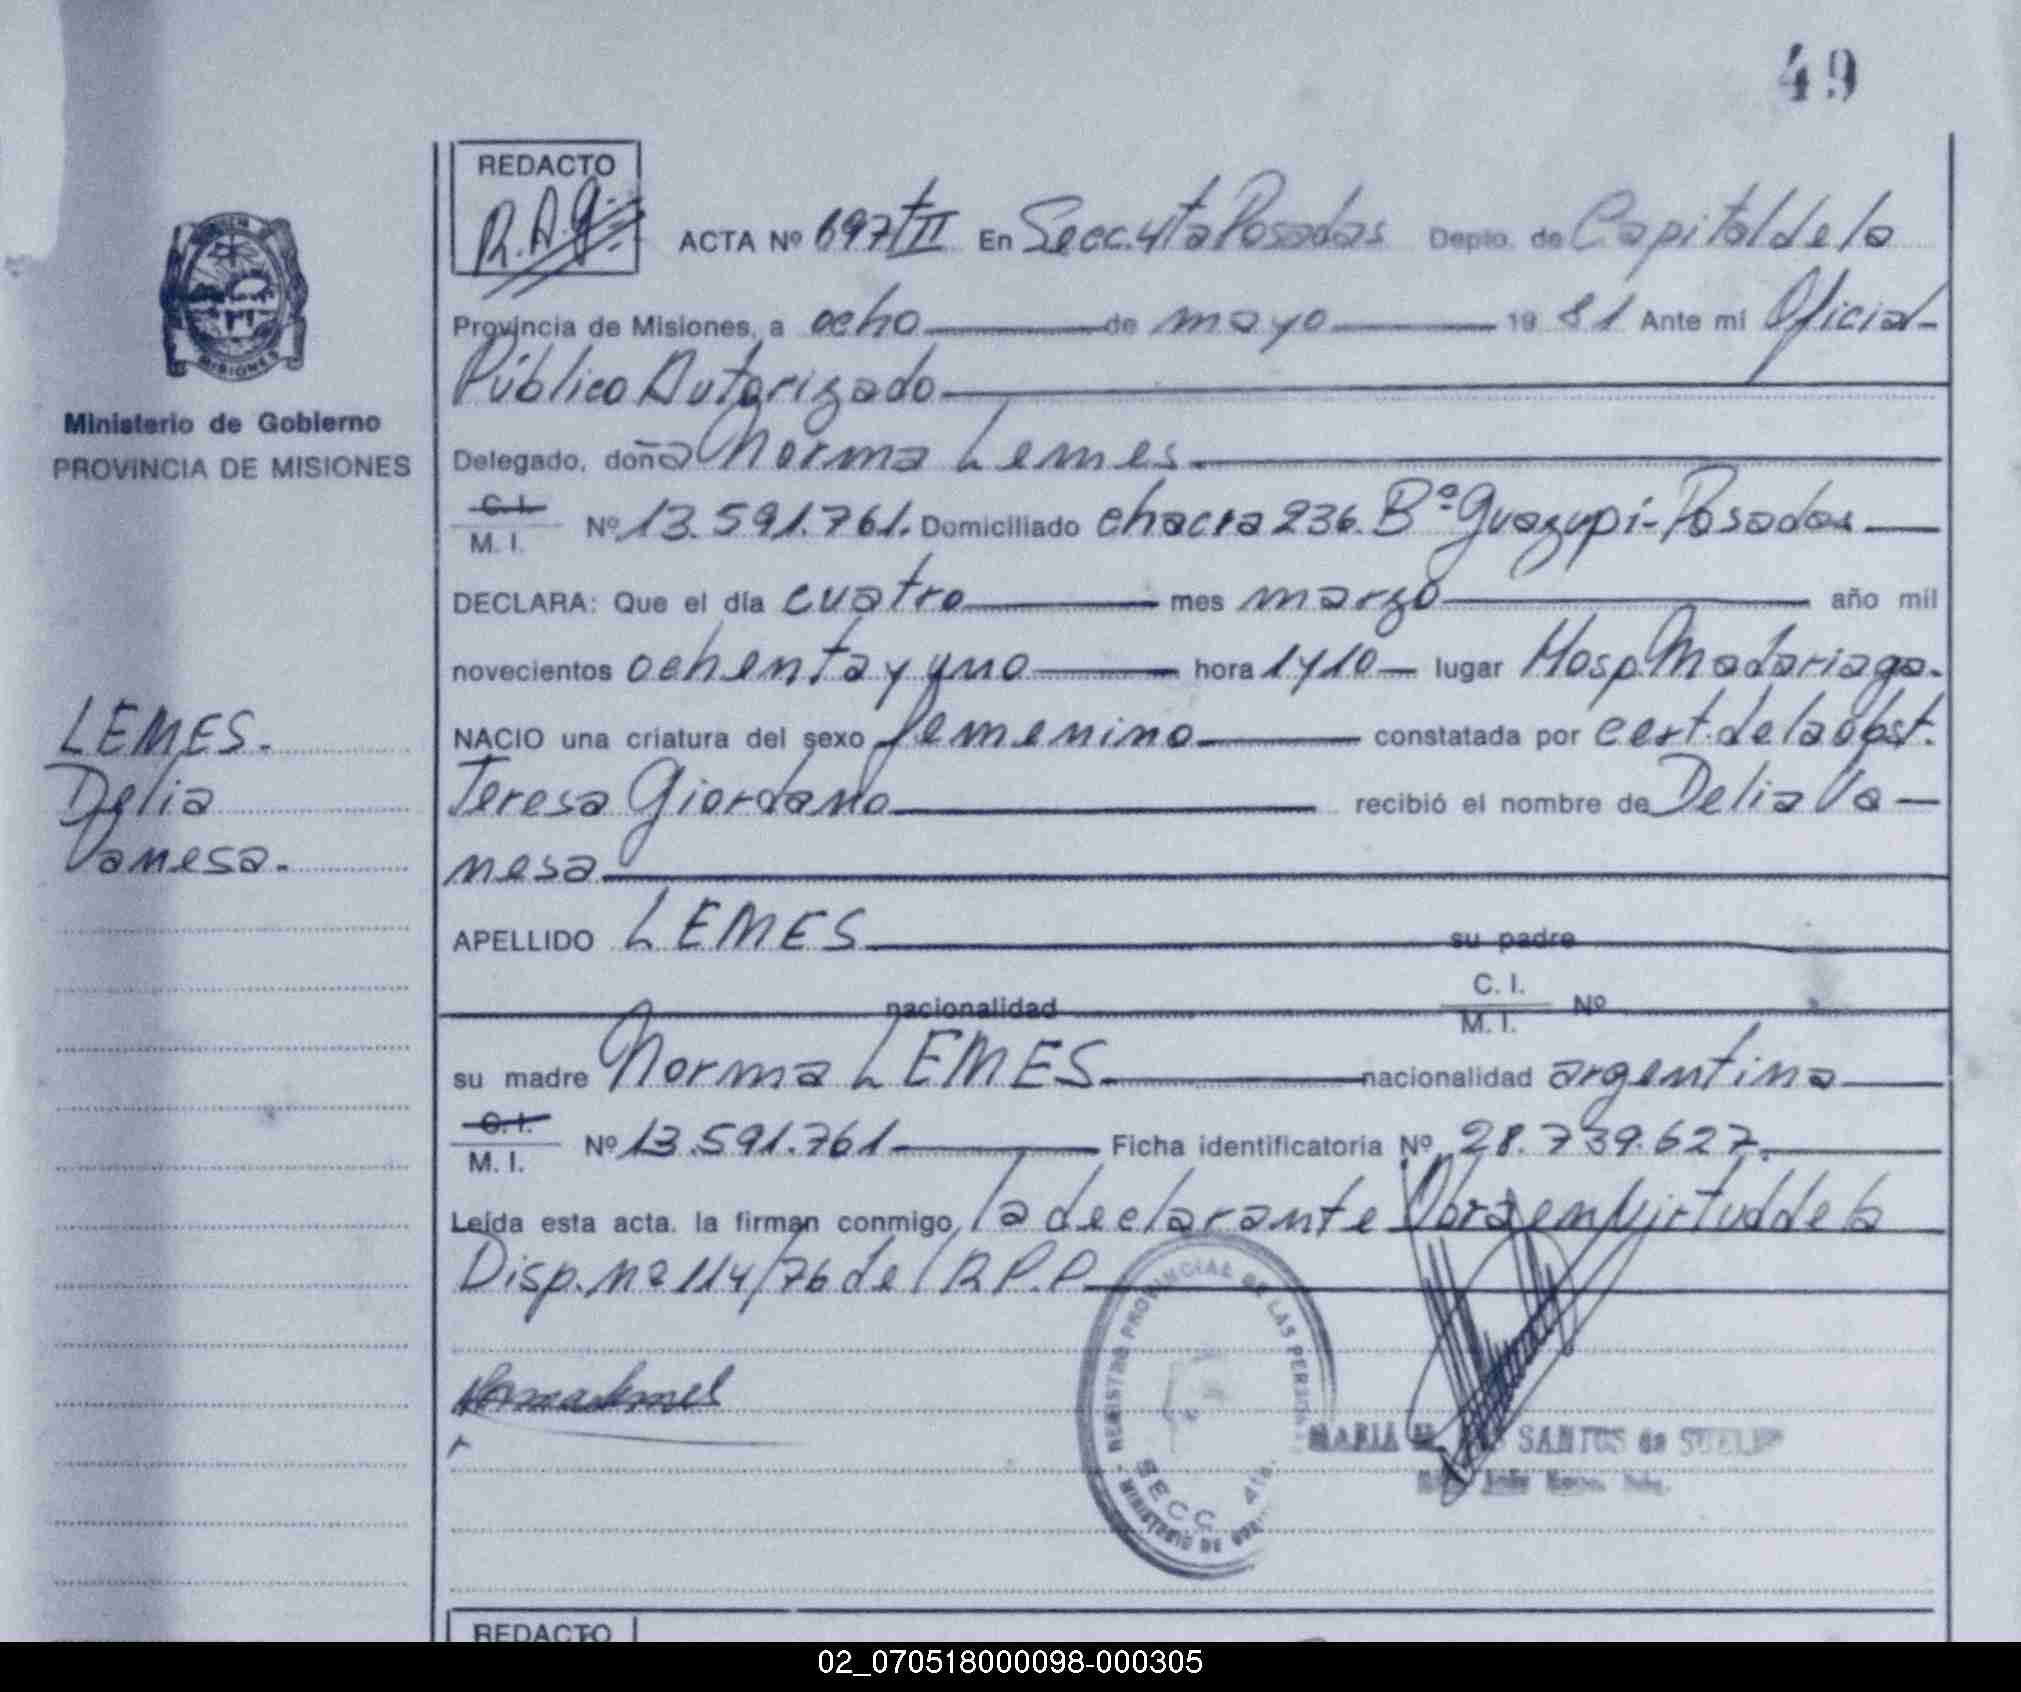 49
REDACTO
R.A.G.
ACTA Nº 697 tII En Secc. 4ta Posadas Depto. de Capital de la
Provincia de Misiones, a ocho de mayo 19 81 Ante mí Oficial
Público Autorizado
Delegado, doña Norma Lemes.
C. I.
M. I. Nº 13.591.761. Domiciliado chacra 236. Bº Guazupi - Posadas
DECLARA: Que el día cuatro mes marzo año mil
novecientos ochenta y uno hora 1410 lugar Hosp. Madariaga.
NACIO una criatura del sexo femenino constatada por cert. de la obst.
Teresa Giordano recibió el nombre de Delia Va-
nesa
APELLIDO LEMES su padre
nacionalidad C. I. Nº
M. I.
su madre Norma LEMES nacionalidad argentina
C. I.
M. I. Nº 13.591.761 Ficha identificatoria Nº 28.739.627.
Leída esta acta, la firman conmigo, la declarante Obra en virtud de la
Disp. nº 114/76 del R.P.P.
Norma Lemes
REGISTRO PROVINCIAL DE LAS PERSONAS
SECC. 4ta.
MINISTERIO DE GOB.
MARIA SANTOS de
Ministerio de Gobierno
PROVINCIA DE MISIONES
MISIONES
LEMES.
Delia
Vanesa.
REDACTO
02_070518000098-000305